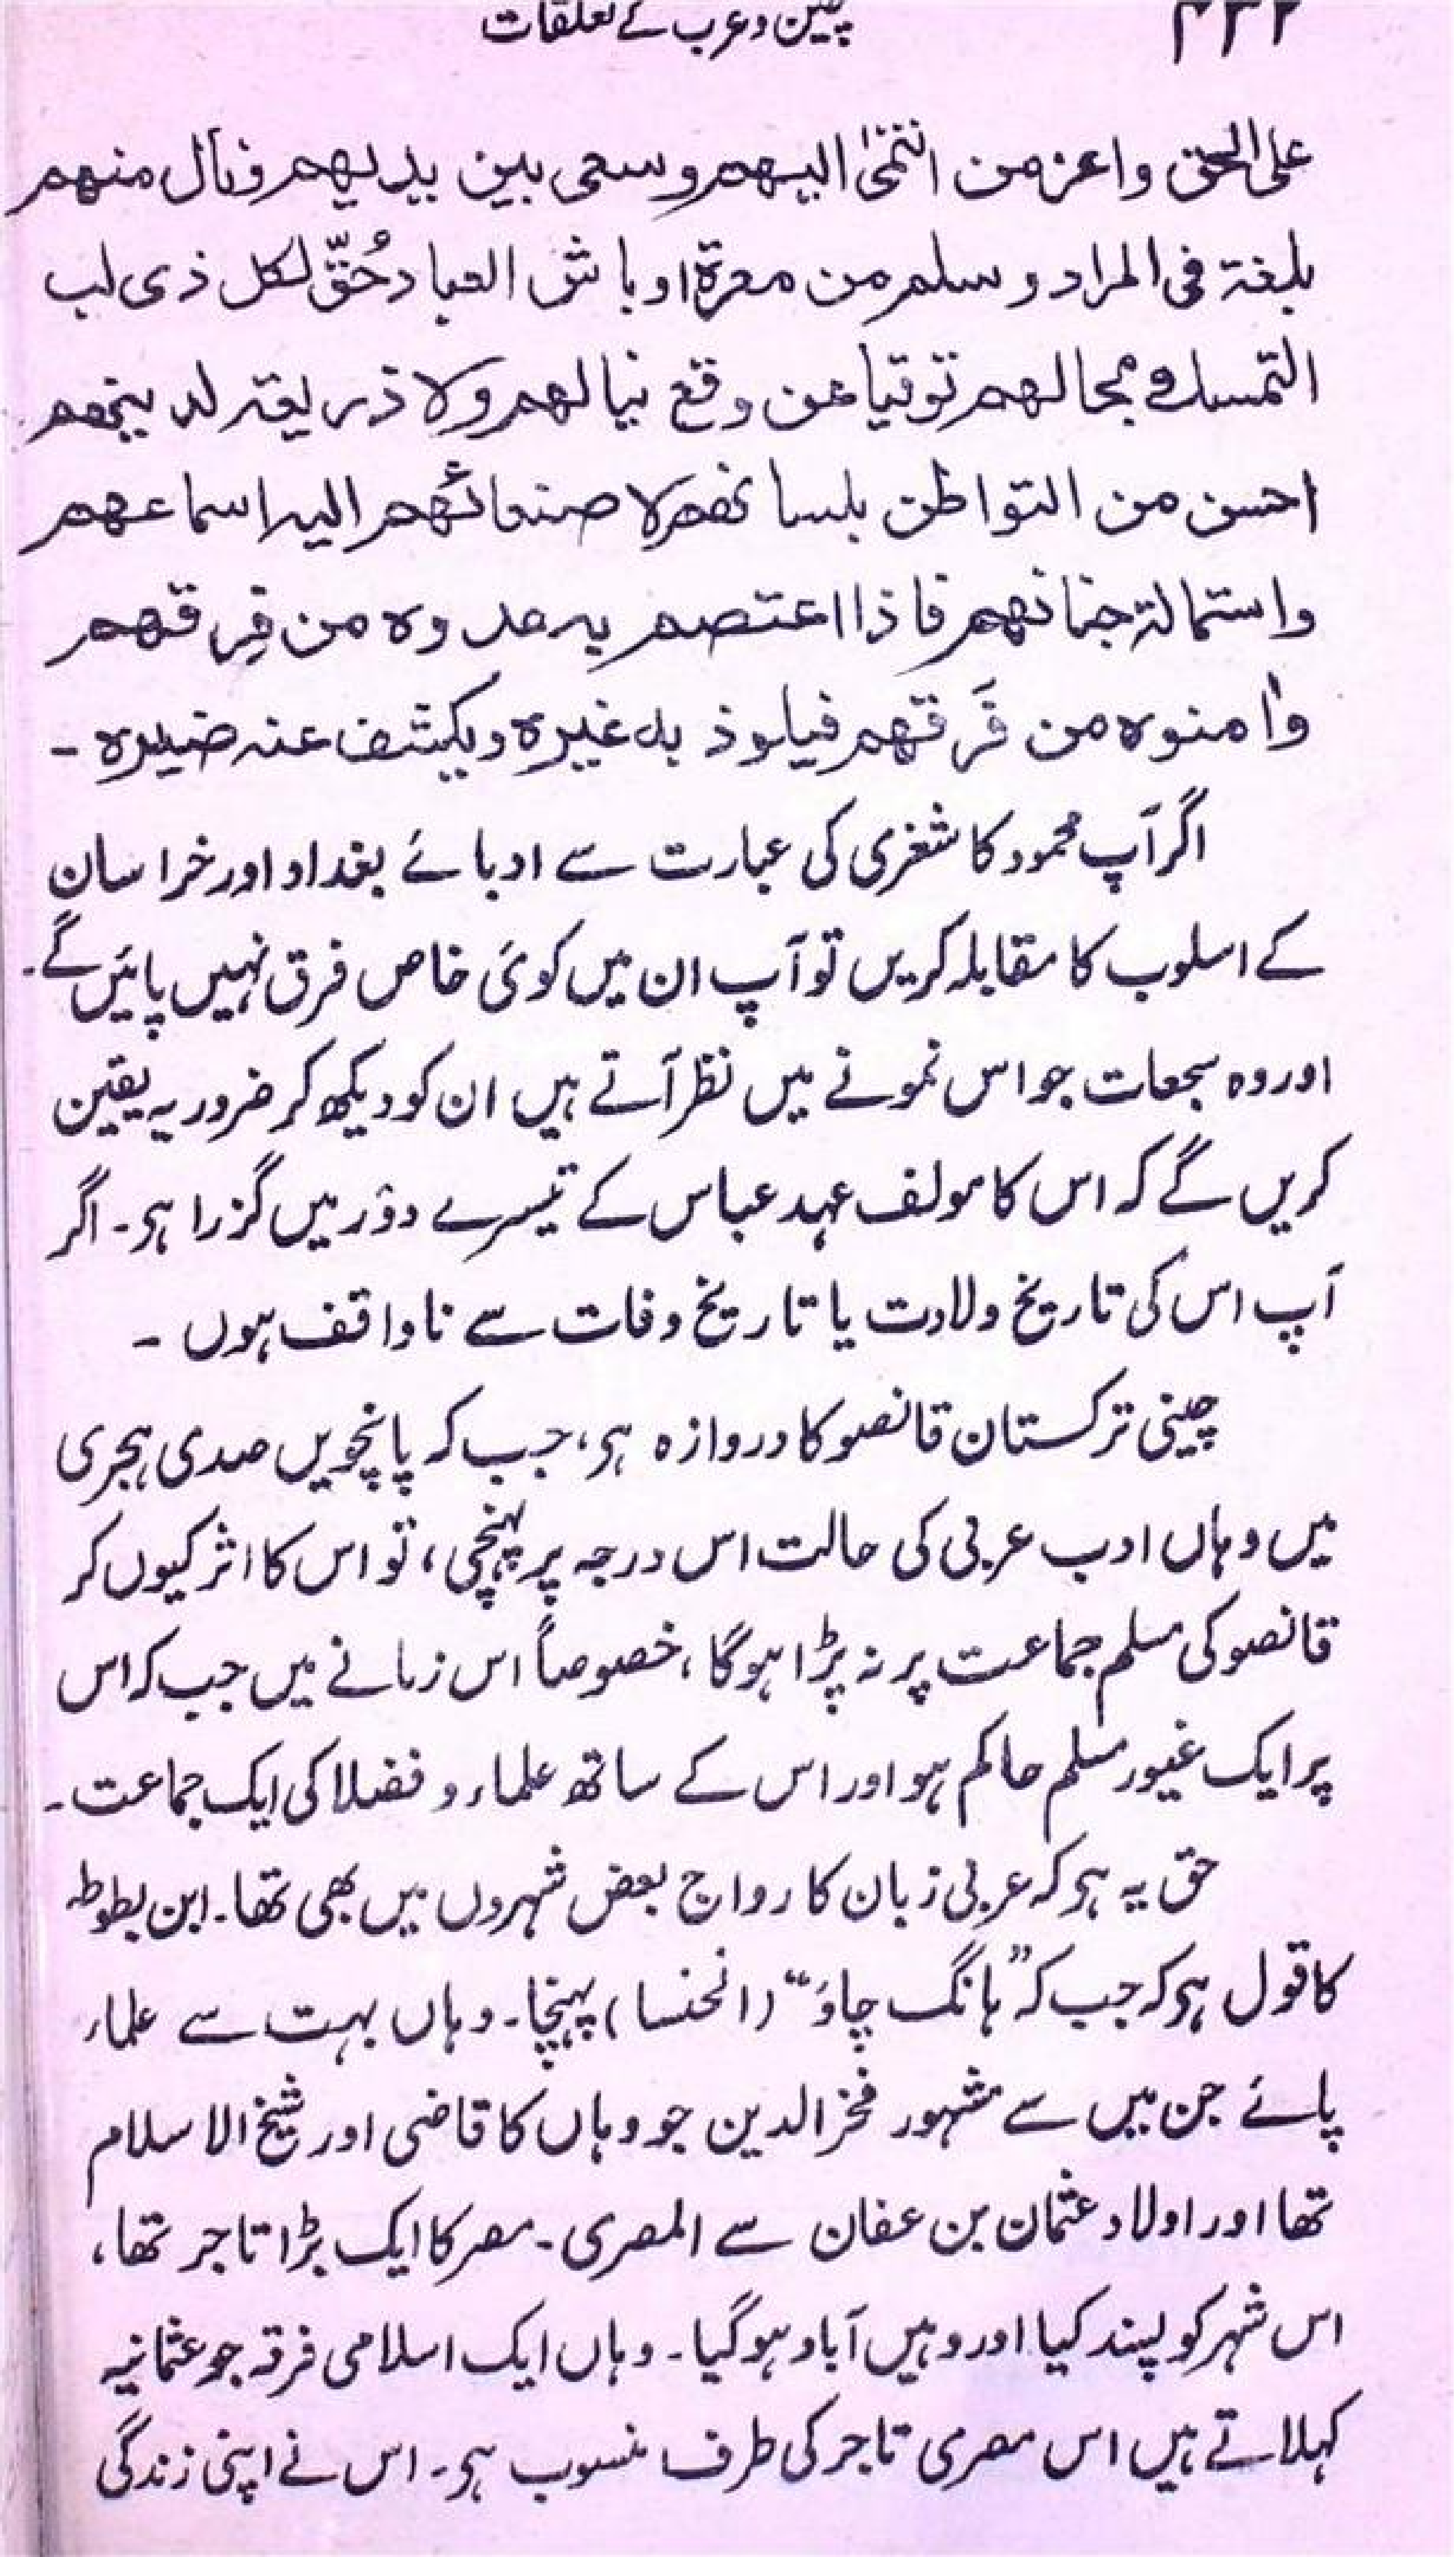 چین و عرب کے تعلقات
علی الحق واعز من انتمیٰ الیهم وسعی بین یدیهم ونال منهم
بلغتہ فی المراد و سلم من معرۃ اوباش العباد حُقّ لکل ذی لب
التمسک بجالهم توقیا عن وقع نبالهم ولا ذریعۃ لدینهم
احسن من التواطن بلسانهم لاصنعائهم الیہ اسماعهم
واستمالۃ جنانهم فاذا اعتصم بہ عدوہ من فِرقهم
وأمنوہ من فَرقهم فیلوذ بہ غیرہ ویکشف عنہ ضیرہ ـ
اگر آپ محمود کاشغری کی عبارت سے ادبائے بغداد اور خراسان
کے اسلوب کا مقابلہ کریں تو آپ ان میں کوئی خاص فرق نہیں پائیں گے۔
اور وہ سجعات جو اس نمونے میں نظر آتے ہیں ان کو دیکھ کر ضرور یہ یقین
کریں گے کہ اس کا مولف عہد عباس کے تیسرے دوٗر میں گزرا ہو۔ اگر
آپ اس کی تاریخ ولادت یا تاریخ وفات سے ناواقف ہوں ۔
چینی ترکستان قانصو کا دروازہ ہو، جب کہ پانچویں صدی ہجری
میں وہاں ادب عربی کی حالت اس درجہ پر پہنچی، تو اس کا اثر کیوں کر
قانصو کی مسلم جماعت پر نہ پڑا ہوگا، خصوصاً اس زمانے میں جب کہ اس
پر ایک غیور مسلم حاکم ہو اور اس کے ساتھ علماء و فضلا کی ایک جماعت۔
حق یہ ہو کہ عربی زبان کا رواج بعض شہروں میں بھی تھا۔ ابن بطوطہ
کا قول ہو کہ جب کہ ”ہانگ چاؤ“ (الخنسا) پہنچا۔ وہاں بہت سے علماء
پائے جن میں سے مشہور فخر الدین جو وہاں کا قاضی اور شیخ الاسلام
تھا اور اولاد عثمان بن عفان سے المصری۔ مصر کا ایک بڑا تاجر تھا،
اس شہر کو پسند کیا اور وہیں آباد ہوگیا۔ وہاں ایک اسلامی فرقہ جو عثمانیہ
کہلاتے ہیں اس مصری تاجر کی طرف منسوب ہو۔ اس نے اپنی زندگی